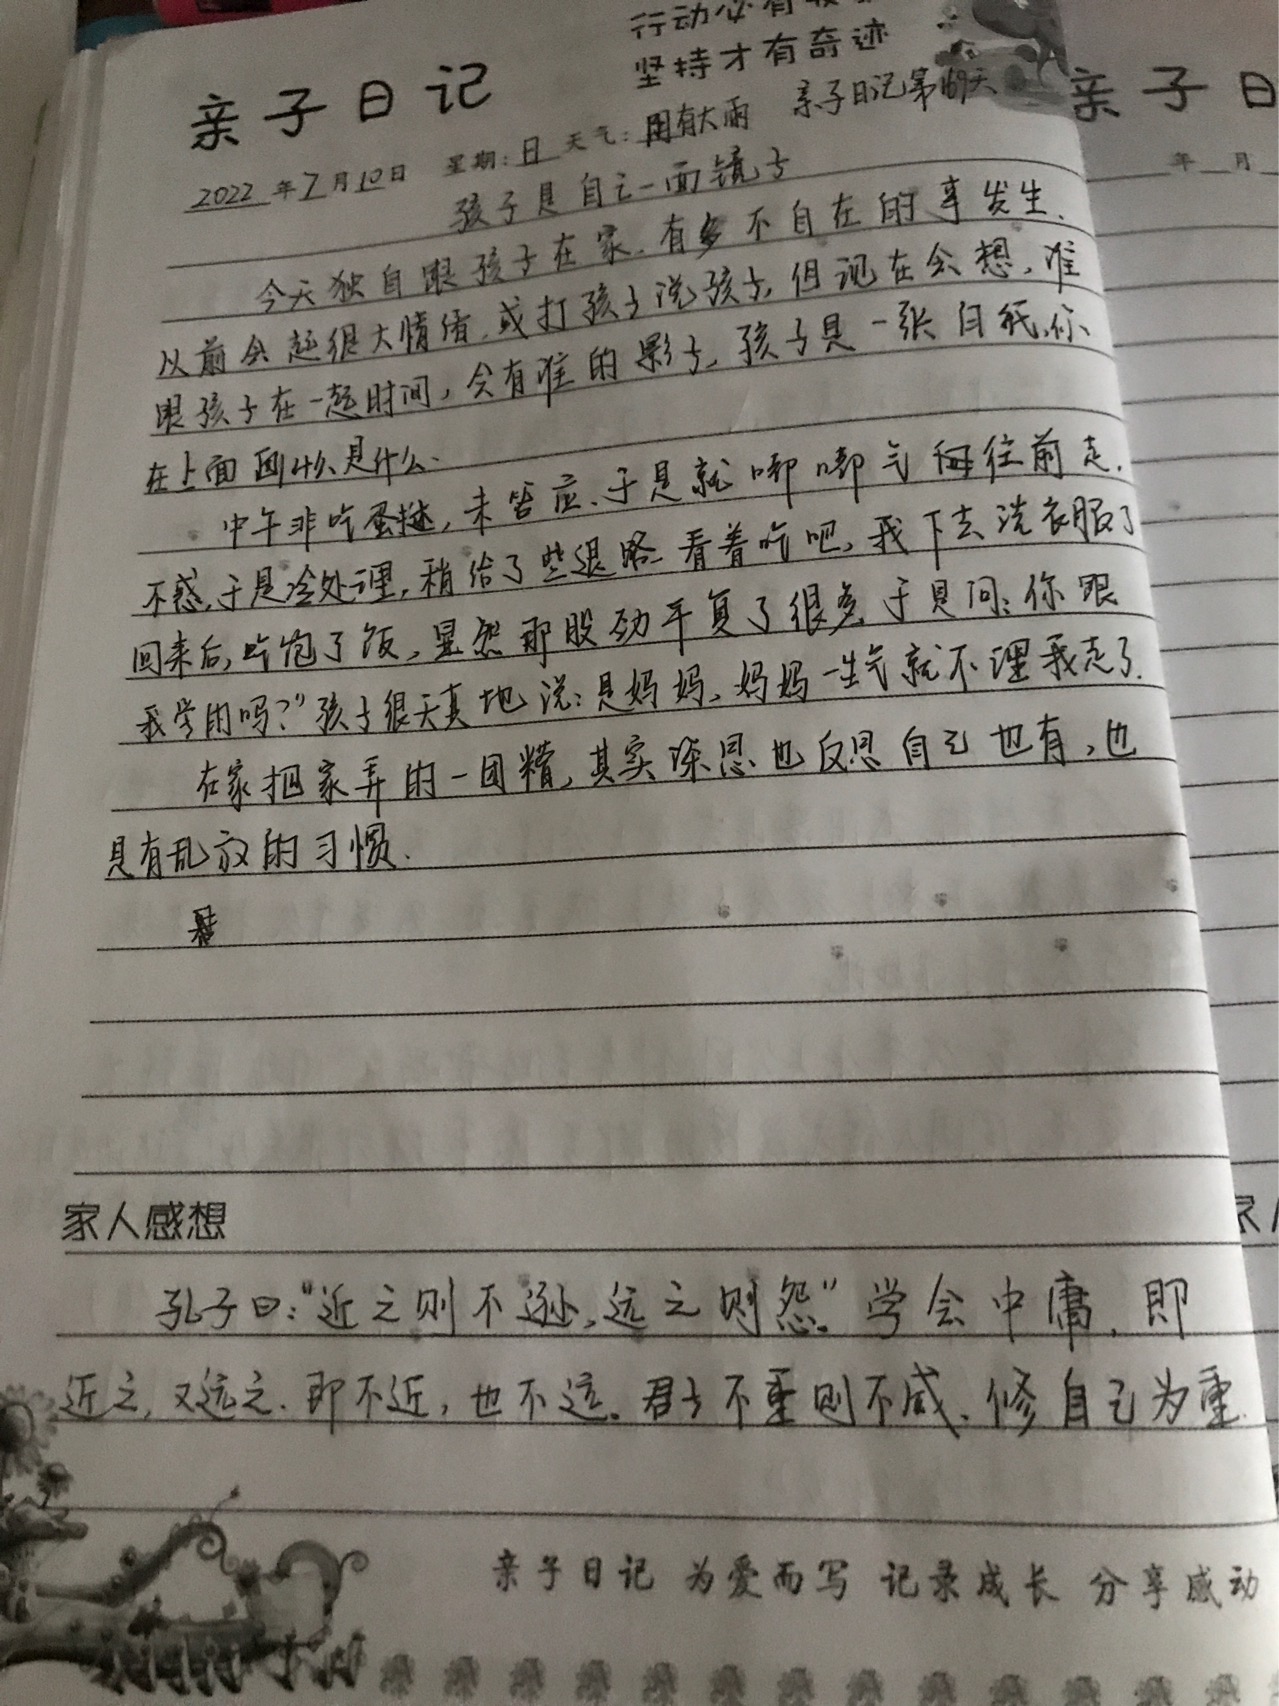 行动必有收
坚持才有奇迹
亲子日记
亲子日记第169天
2022年7月10日 星期:日 天气:阴有大雨
孩子是自己一面镜子
今天独自跟孩子在家.有多不自在的事发生.
以前会起很大情绪.或打孩子说孩子.但现在会想,谁
跟孩子在一起时间,会有谁的影子.孩子是一张白纸.你
在上面画什么是什么.
中午非吃蛋挞,未答应.于是就嘟嘟气 往前走.
不惑,于是冷处理,稍给了些退路.看着吃吧.我下去洗衣服了
回来后,吃饱了饭,显然那股劲平复了很多于是问:你跟
我学用吗?"孩子很天真地说:是妈妈.妈妈一生气就不理我走了.
在家把家弄的一团糟,其实深思也反思自己也有,也
是有乱放的习惯.
家人感想
孔子曰:"近之则不逊,远之则怨."学会中庸.即
近之,又远之.即不近,也不远.君子不重则不威.修自己为重.
亲子日记 为爱而写 记录成长 分享感动
亲子日
年 月